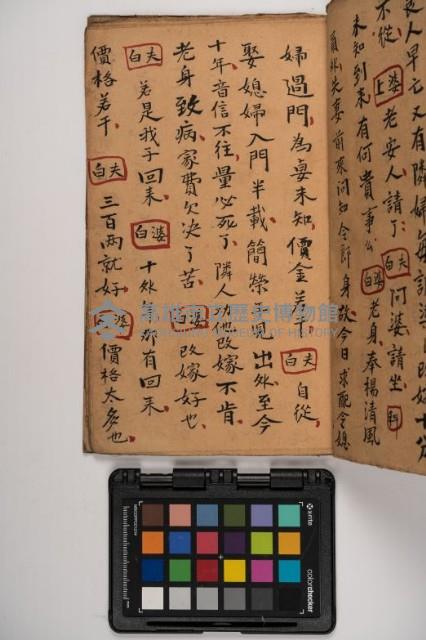 良人早亡又有隣婦
不從 上婆 老安人請了 白夫 問婆請坐
未知到來有何貴事 白婆 老身奉楊清風
員外夫妻前來問知令郎身故今日求配令媳
婦過門為妾未知價金若 白夫 自從
娶媳婦入門半載簡榮 兒出外至今
十年音信不往量必死了隣人 他改嫁不肯
老身致病家費欠決了苦 改嫁好也
白夫 若是我子回來 白婆 十外年那有回來
價格若干 白夫 三百兩就好 婆 價格太多也
高雄市立歷史博物館
KAOHSIUNG MUSEUM OF HISTORY
x-rite
colorchecker